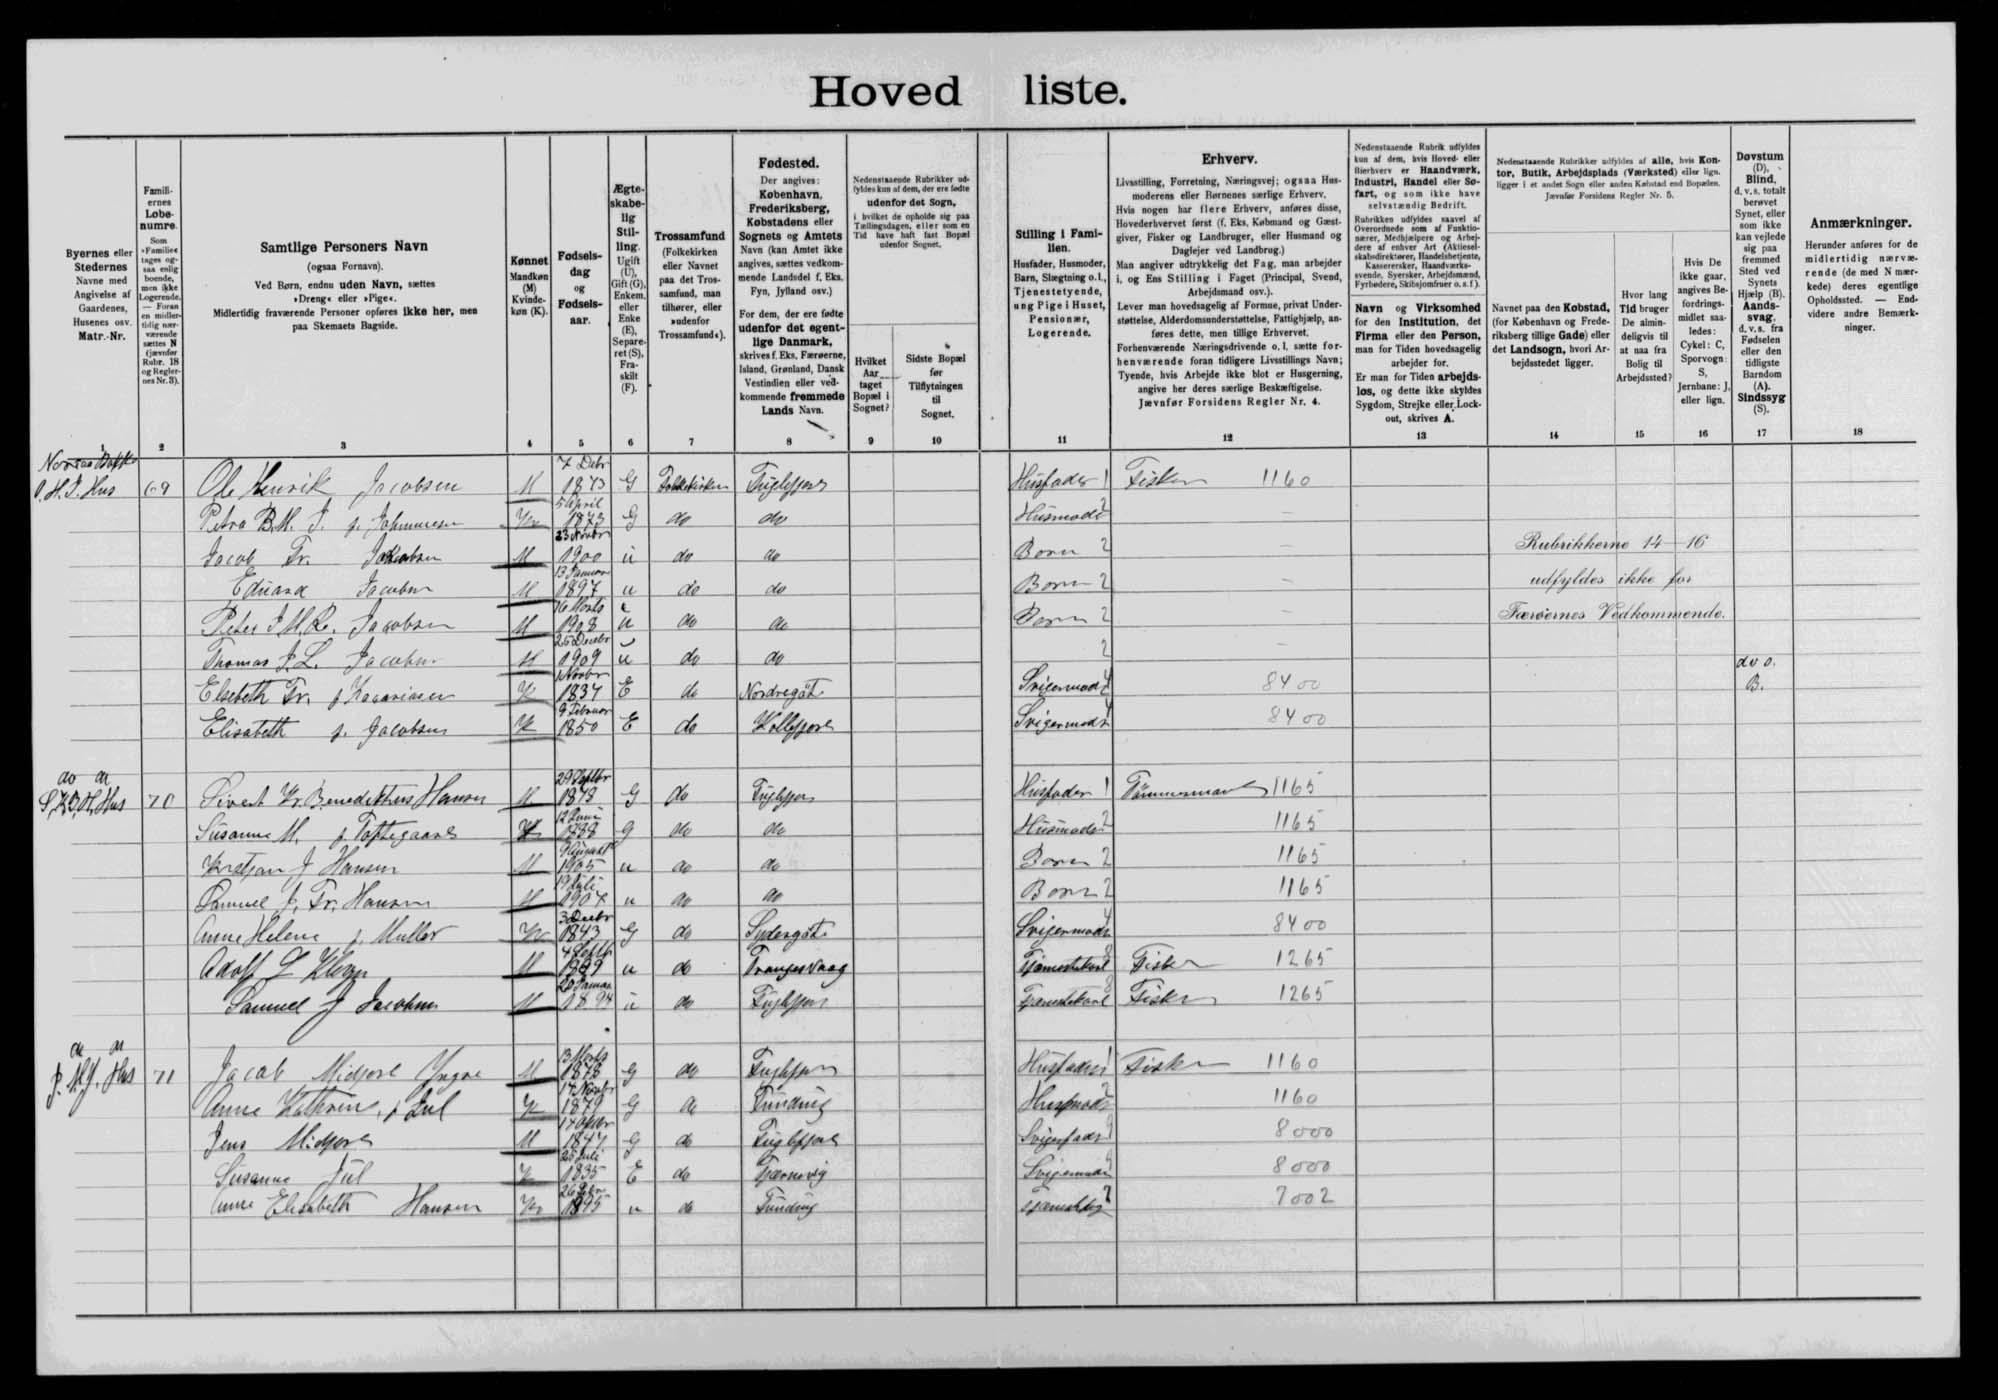 Hoved liste.
Byernes eller Stedernes Navne med Angivelse af Gaardenes, Husenes osv. Matr.-Nr.
Famili-
ernes
Løbe-
numre.
Som »Familie« tages og-
saa enlig boende, men ikke Logerende. — Foran en midler-
tidig nær-
værende sættes N (jævnfør Rubr. 18 og Regler-
nes Nr. 3).
Samtlige Personers Navn
(ogsaa Fornavn).
Ved Børn, endnu uden Navn, sættes
»Dreng« eller »Pige«.
Midlertidig fraværende Personer opføres ikke her, men
paa Skemaets Bagside.
Kønnet
Mandkøn
(M)
Kvinde-
køn (K).
Fødsels-
dag
og
Fødsels-
aar.
Ægte-
skabe-
lig
Stil-
ling.
Ugift
(U),
Gift (G),
Enkem.
eller
Enke
(E),
Separe-
ret (S),
Fra-
skilt
(F).
Trossamfund
(Folkekirken
eller Navnet
paa det Tros-
samfund, man
tilhører, eller
»udenfor
Trossamfund«).
Fødested.
Der angives:
København,
Frederiksberg,
Købstadens eller
Sognets og Amtets
Navn (kan Amtet ikke
angives, sættes vedkom-
mende Landsdel f. Eks.
Fyn, Jylland osv.)
For dem, der ere fødte
udenfor det egent-
lige Danmark,
skrives f. Eks. Færøerne,
Island, Grønland, Dansk
Vestindien eller ved-
kommende fremmede
Lands Navn.
Nedenstaaende Rubrikker ud-
fyldes kun af dem, der ere fødte
udenfor det Sogn,
i hvilket de opholde sig paa
Tællingsdagen, eller som en
Tid have haft fast Bopæl
udenfor Sognet.
Hvilket
Aar
taget
Bopæl i
Sognet?
Sidste Bopæl
før
Tilflytningen
til
Sognet.
Stilling i Fami-
lien.
Husfader, Husmoder,
Barn, Slægtning o. l.,
Tjenestetyende,
ung Pige i Huset,
Pensionær,
Logerende.
Erhverv.
Livsstilling, Forretning, Næringsvej; ogsaa Hus-
moderens eller Børnenes særlige Erhverv.
Hvis nogen har flere Erhverv, anføres disse,
Hovederhvervet først (f. Eks. Købmand og Gæst-
giver, Fisker og Landbruger, eller Husmand og
Daglejer ved Landbrug.)
Man angiver udtrykkelig det Fag, man arbejder
i, og Ens Stilling i Faget (Principal, Svend,
Arbejdsmand osv.).
Lever man hovedsagelig af Formue, privat Under-
støttelse, Alderdomsunderstøttelse, Fattighjælp, an-
føres dette, men tillige Erhvervet.
Forhenværende Næringsdrivende o. l. sætte for-
henværende foran tidligere Livsstillings Navn;
Tyende, hvis Arbejde ikke blot er Husgerning,
angive her deres særlige Beskæftigelse.
Jævnfør Forsidens Regler Nr. 4.
Nedenstaaende Rubrik udfyldes
kun af dem, hvis Hoved- eller
Bierhverv er Haandværk,
Industri, Handel eller Sø-
fart, og som ikke have
selvstændig Bedrift.
Rubrikken udfyldes saavel af
Overordnede som af Funktio-
nærer, Medhjælpere og Arbej-
dere af enhver Art (Aktiesel-
skabsdirektører, Handelsbetjente,
Kasserersker, Haandværks-
svende, Syersker, Arbejdsmænd,
Fyrbødere, Skibsjomfruer o. s. f.).
Navn og Virksomhed
for den Institution, det
Firma eller den Person,
man for Tiden hovedsagelig
arbejder for.
Er man for Tiden arbejds-
løs, og dette ikke skyldes
Sygdom, Strejke eller Lock-
out, skrives A.
Nedenstaaende Rubrikker udfyldes af alle, hvis Kon-
tor, Butik, Arbejdsplads (Værksted) eller lign.
ligger i et andet Sogn eller anden Købstad end Bopælen.
Jævnfør Forsidens Regler Nr. 5.
Navnet paa den Købstad,
(for København og Frede-
riksberg tillige Gade) eller
det Landsogn, hvori Ar-
bejdsstedet ligger.
Hvor lang
Tid bruger
De almin-
deligvis til
at naa fra
Bolig til
Arbejdssted?
Hvis De
ikke gaar,
angives Be-
fordrings-
midlet saa-
ledes:
Cykel: C,
Sporvogn:
S,
Jernbane: J,
eller lign.
Døvstum
(D),
Blind,
d. v. s. totalt
berøvet
Synet, eller
som ikke
kan vejlede
sig paa
fremmed
Sted ved
Synets
Hjælp (B).
Aands-
svag,
d. v. s. fra
Fødselen
eller den
tidligste
Barndom
(A).
Sindssyg
(S).
Anmærkninger.
Herunder anføres for de
midlertidig nærvæ-
rende (de med N mær-
kede) deres egentlige
Opholdssted. — End-
videre andre Bemærk-
ninger.
2 3 4 5 6 7 8 9 10 11 12 13 14 15 16 17 18
O. H. J. Hus 69 Ole Henrik Jacobsen M 7 Debr 1873 G Folkekirken Fuglefjord Husfader 1 Fisker 1160
Petra B. M. J. f. Johannesen Kv 5 April 1873 G do do Husmoder 2 —
Jacob Fr. Jakobsen M 23 Novbr 1900 u do do Barn 2 — Rubrikkerne 14-16
Eduard Jacobsen M 13 Januar 1897 u do do Barn 2 — udfyldes ikke for
Peter J. M. R. Jacobsen M 16 Marts 1908 u do do Barn 2 — Færøernes Vedkommende.
Thomas J. L. Jacobsen M 25 Decbr 1909 u do do 2 —
Elsebeth Fr. f. Zacariasen K Novbr 1837 E do Nordregøte Svigermoder 4 8400 B.
Elisabeth f. Jacobsen K 9 Februar 1850 E do Kollefjord Svigermoder 4 8400
do do
Hus 70 Sivert Kr. Benedikthus Hansen M 29 Septbr 1878 G do Fuglefjord Husfader 1 Tømmermand 1165
Susanne M. f. Toftegaard K 12 Juni 1888 G do do Husmoder 2 1165
Kristjan J Hansen M August 1905 u do do Barn 2 1165
Samuel J. Fr. Hansen M 19 Juli 1907 u do do Barn 2 1165
Anne Helene f. Muller Kv 3 Decbr 1843 G do Sydergøte Svigermoder 4 8400
Adolf M 4 Septbr u do Trangesvaag Tjenestekarl 8 Fisker 1265
Samuel J Jacobsen M 20 Januar 1894 u do Fuglefjord Tjenestekarl 8 Fisker 1265
do do
Hus 71 Jacob Midjord M 13 Marts 1878 G do Fuglefjord Husfader 1 Fisker 1160
Anne Kathrine f. Jul K 14 Novbr 1879 G do Funding Husmoder 2 1160
Jens Midjord M 14 Oktbr 1847 G do Fuglefjord Svigerfader 8000
Susanne Jul K 25 Juli 1835 E do Tjørnevig Svigermoder 8000
Anne Elisabeth Hansen Kv 26 1895 u do Funding 7002